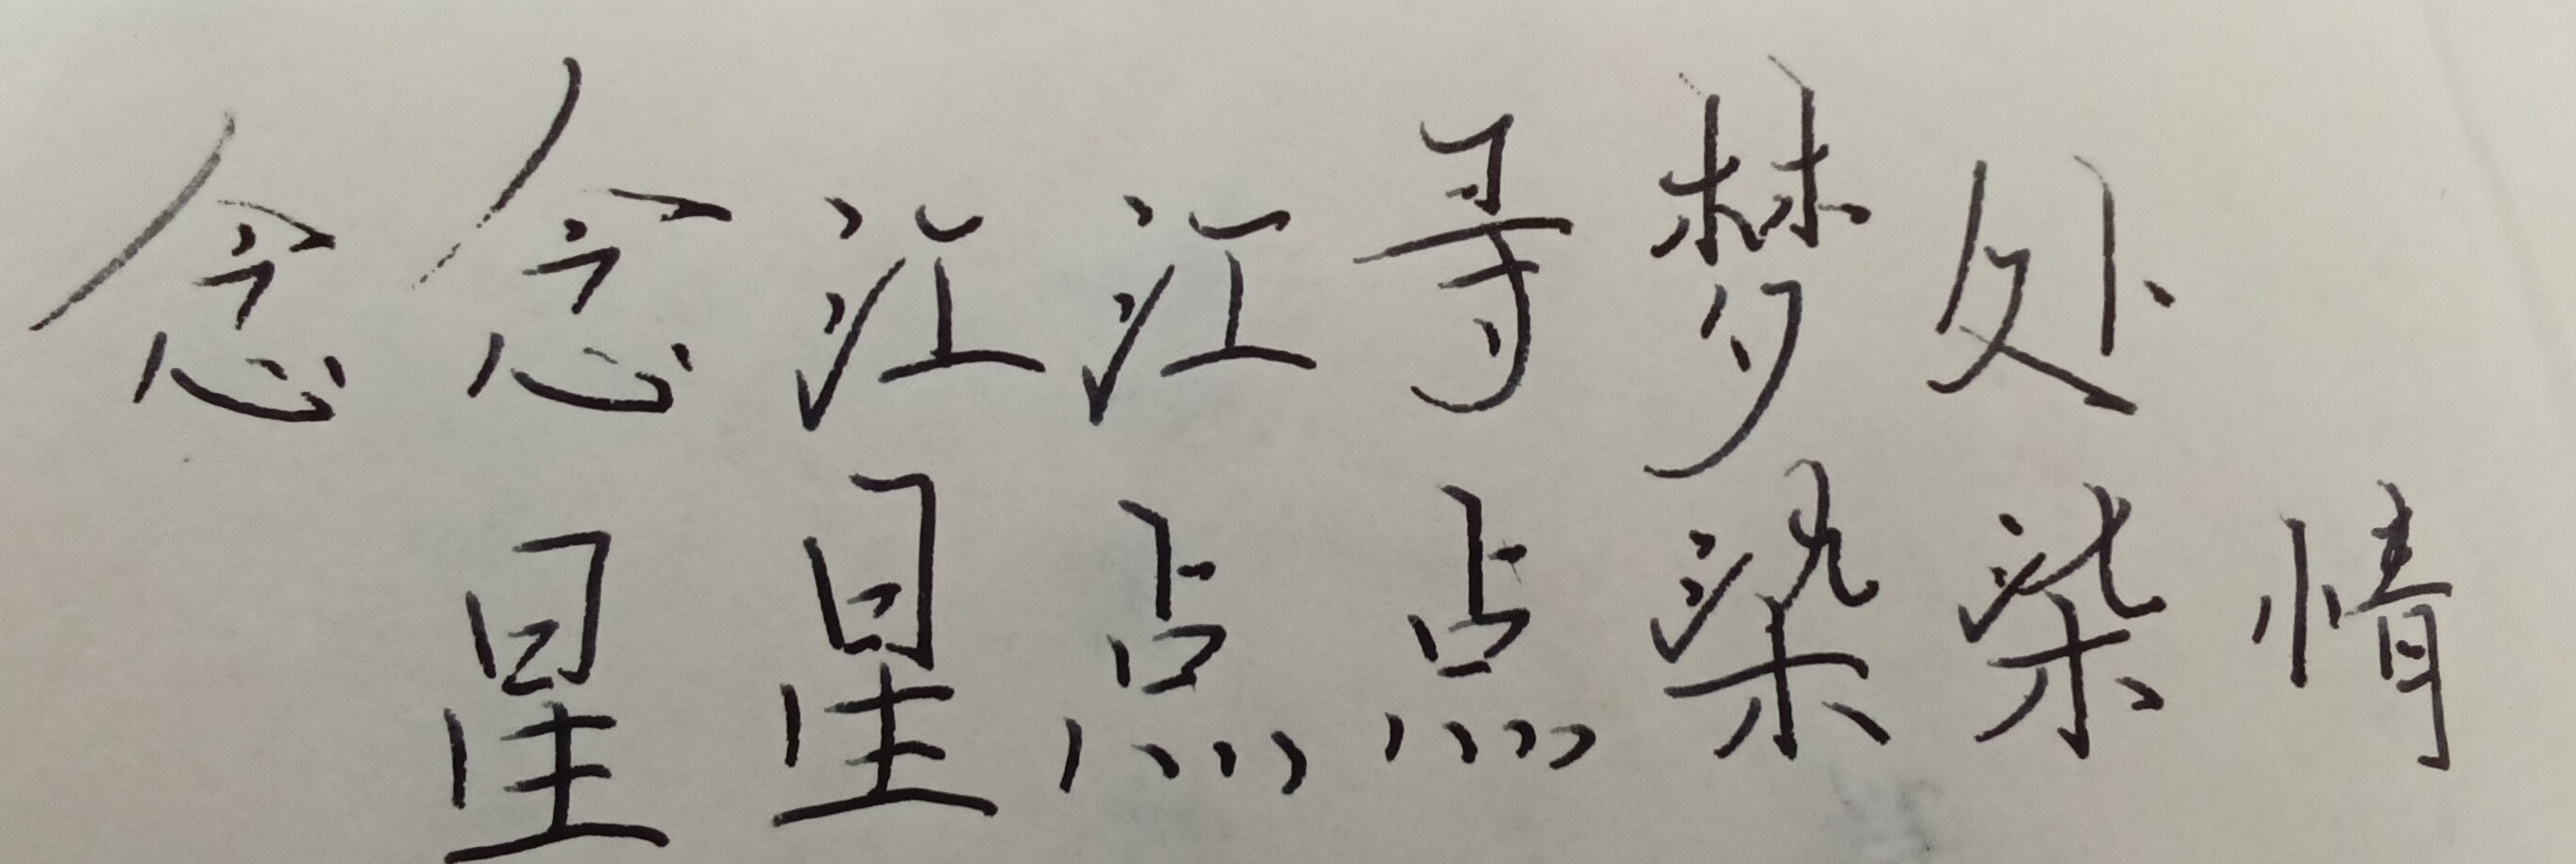 念念江江寻梦处
星星点点染染情